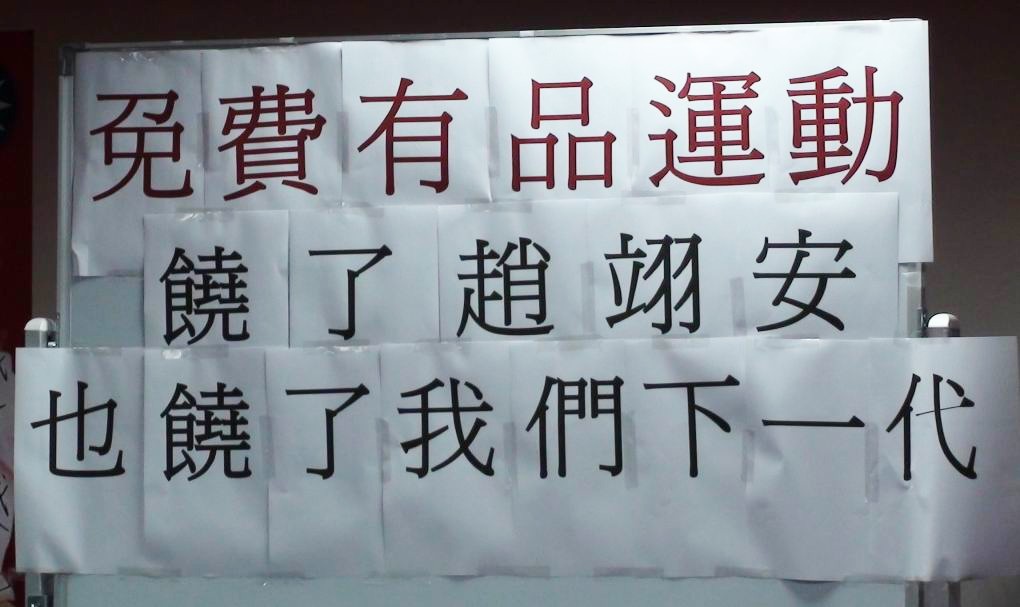 免費有品運動
饒了趙翊安
也饒了我們下一代